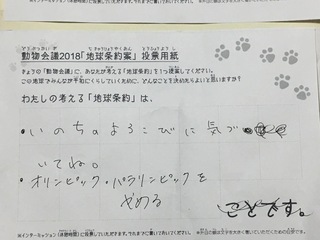 動物会議2018「地球条約案」投票用紙
きょうの「動物会議」に、あなたが考える「地球条約」を1つ提案してください。
この地球でみんなが平和にくらしていくために、どんなことを決めたらよいと思いますか？
わたしの考える「地球条約」は、
・いのちのよろこびに気づ
いてね。
・オリンピック・パラリンピックを
やめる
ことです。
※インターミッション(休憩時間)に投票していただきます。それまでに書いておいてください。